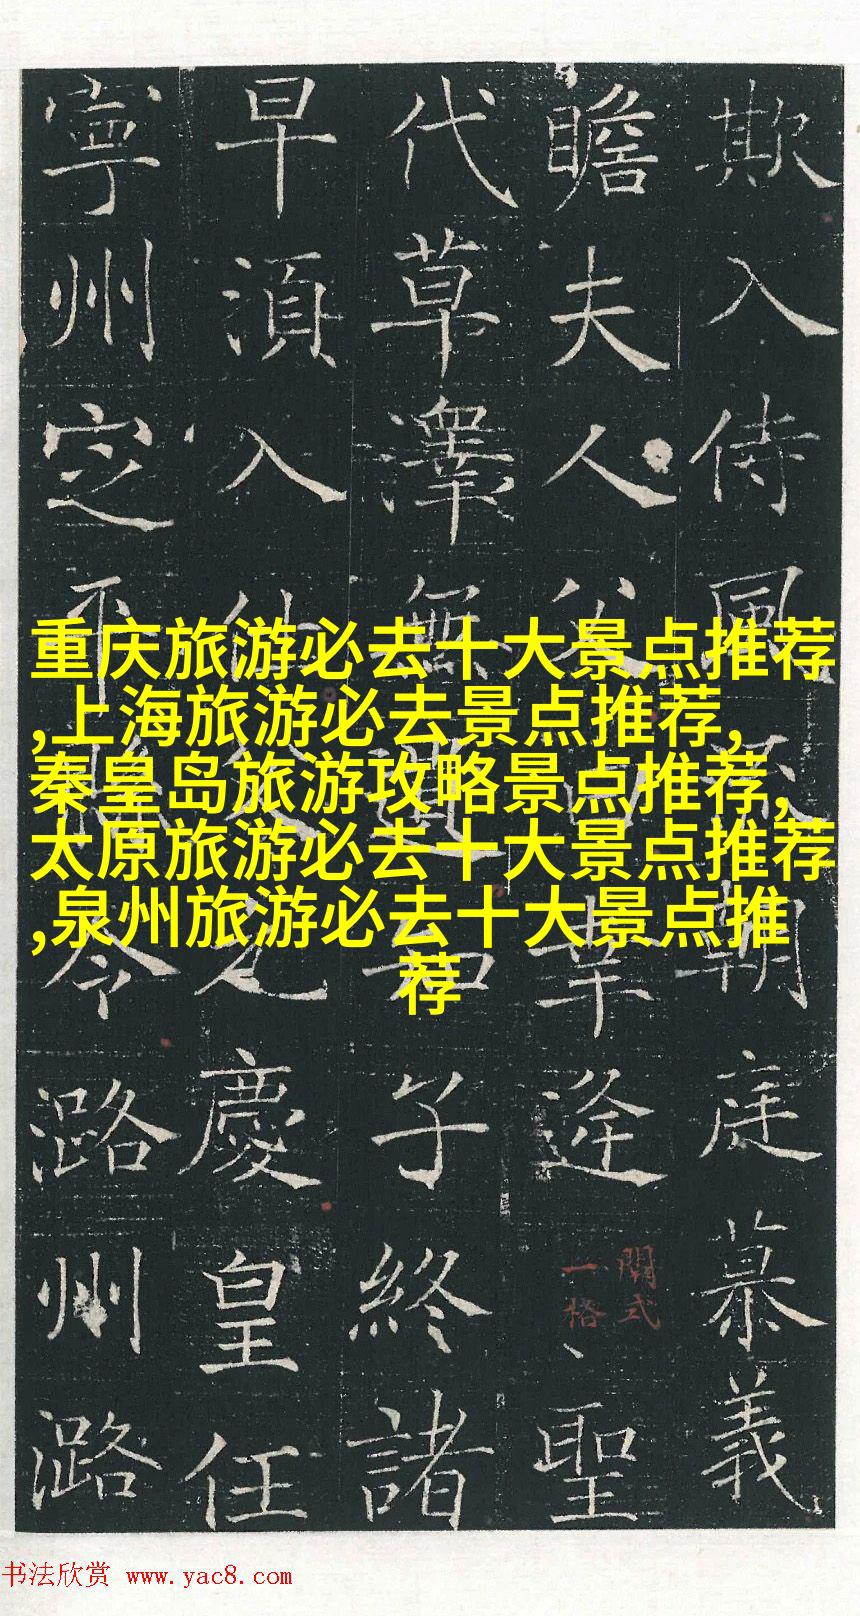 重庆旅游必去十大景点推荐
,上海旅游必去景点推荐,
秦皇岛旅游攻略景点推荐,
太原旅游必去十大景点推荐
,泉州旅游必去十大景点推
荐
欺入侍風朝庭慕義
瞻夫人父葉逢聖
代草澤無遺知子終諸
早須入仕父兄慶皇任
寧州定平縣令潞州潞
式
一格
书法欣赏 www.yac8.com